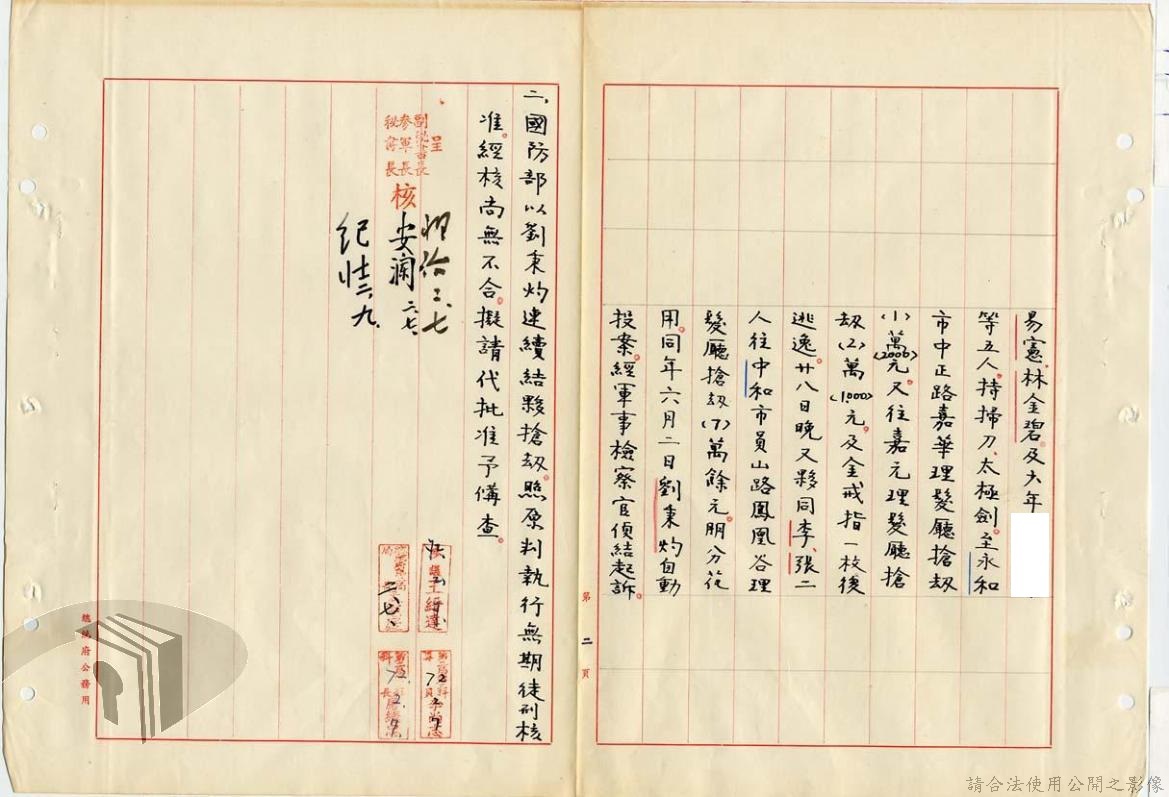 易憲、林金碧。及大年
等五人。持掃刀、太極劍。至永和
市中正路嘉華理髮廳搶劫
(1)萬(2000)元。又往嘉元理髮廳搶
劫(2)萬(1000)元。及金戒指一枚後
逃逸。廿八日晚又夥同李、張二
人往中和市員山路鳳凰谷理
髮廳搶劫(7)萬餘元。朋分花
用。同年六月二日劉秉灼自動
投案。經軍事檢察官偵結起訴。
第二頁
二、國防部以劉秉灼連續結夥搶劫。照原判執行無期徒刑核
准。經核尚無不合。擬請代批准予備查。
呈
副秘書長
參軍長
秘書長
核
二、七
安瀾 二七、
二、九、
二、七、
72.2.7
72.2.7
總統府公務用
請合法使用公開之影像